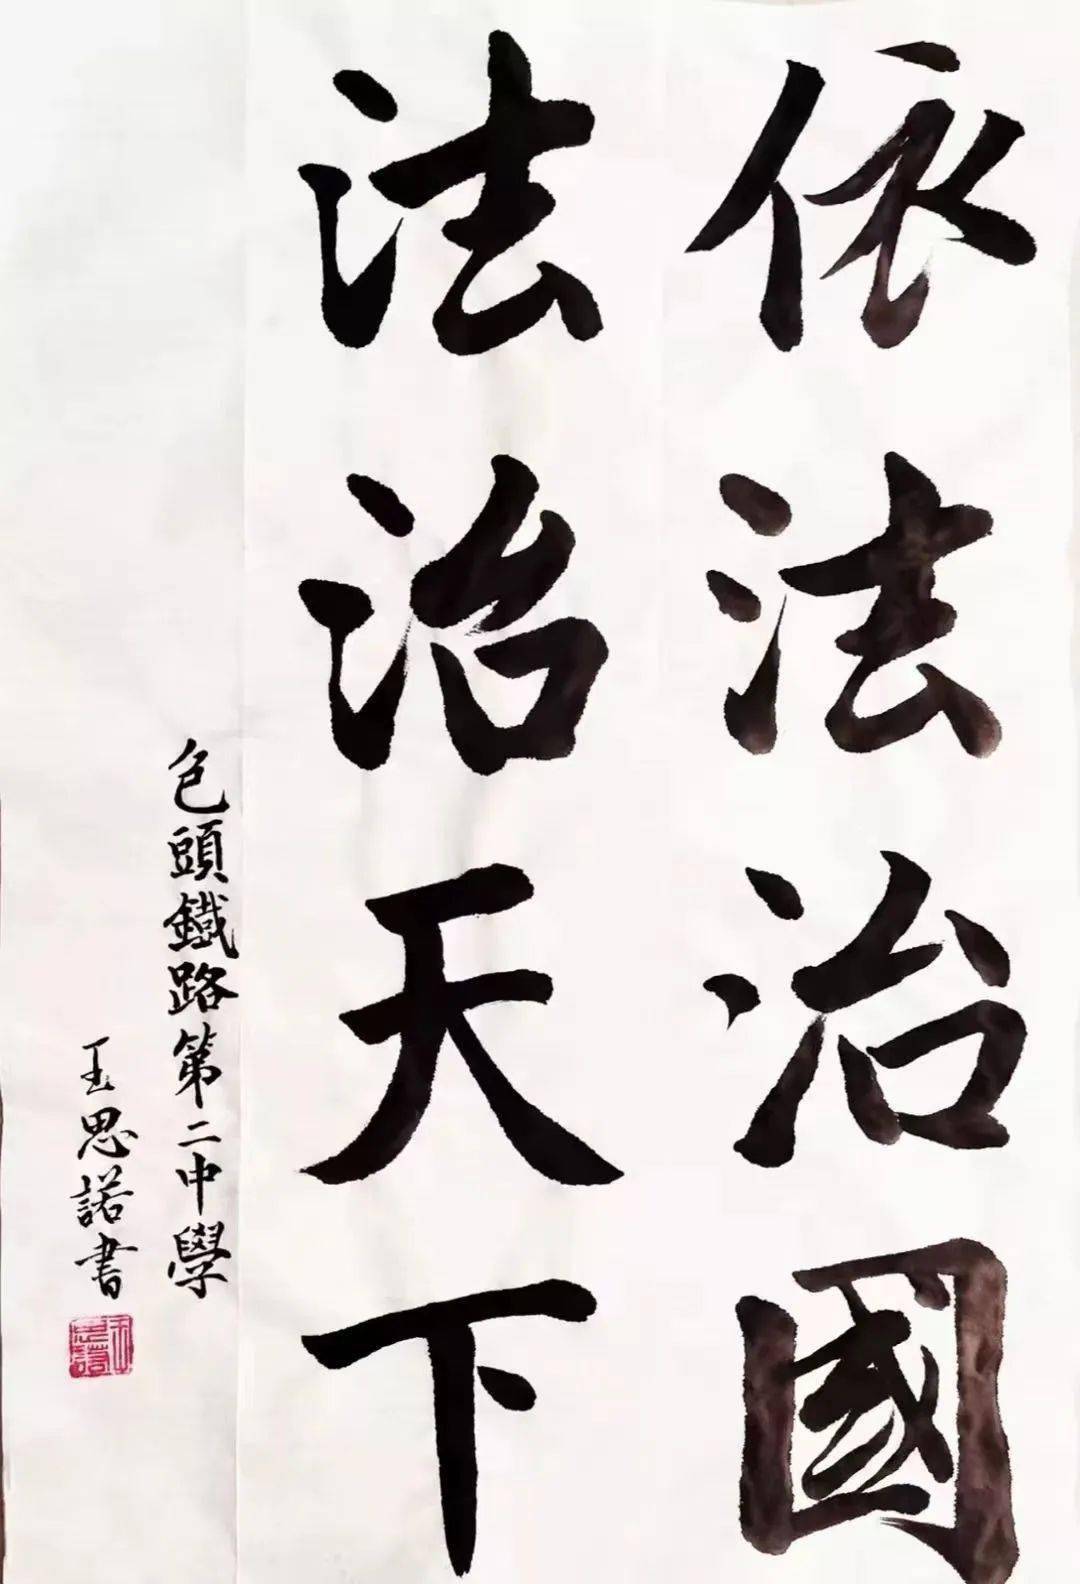 依法治國
法治天下
包頭鐵路第二中學
王思諾書
王思諾